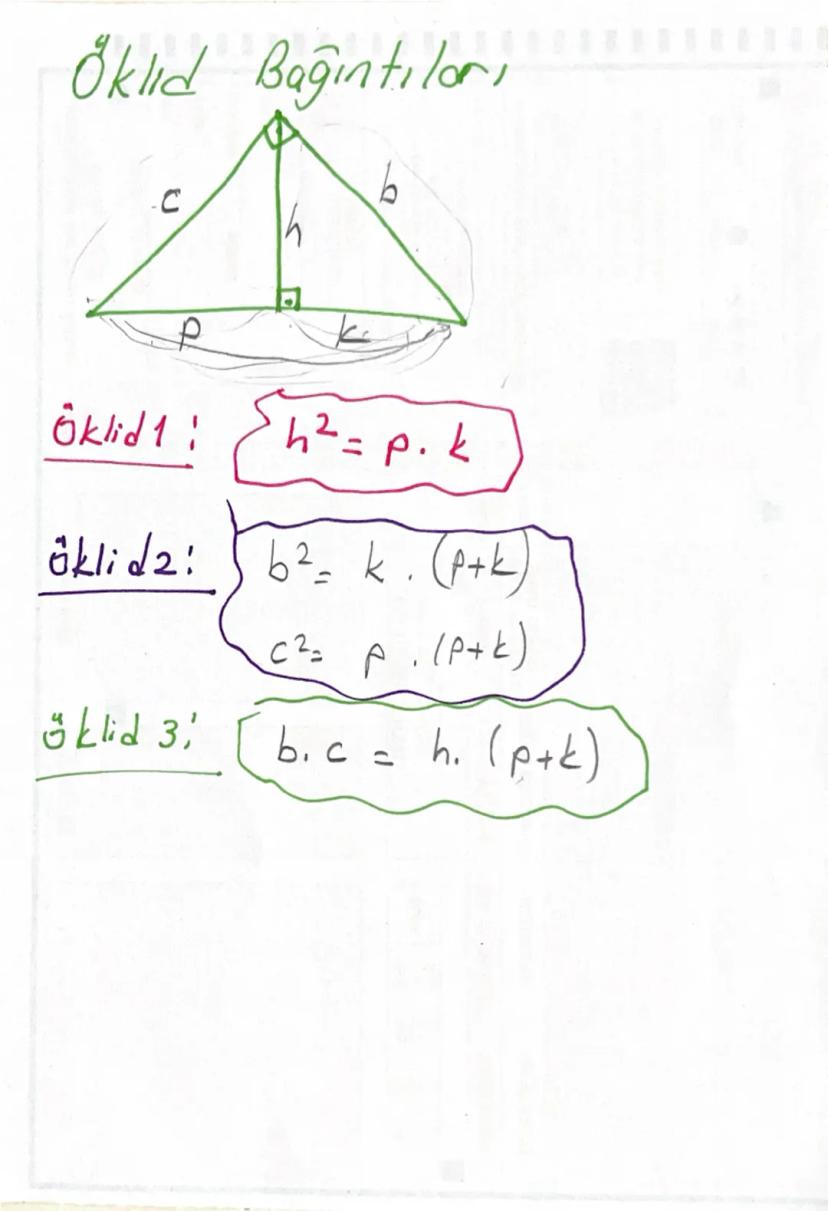 Öklid Bağıntıları
c
b
h
p
k
Öklid 1: h² = p . k
Öklid 2: b² = k . (p+k)
c² = p . (p+k)
Öklid 3: b . c = h . (p+k)